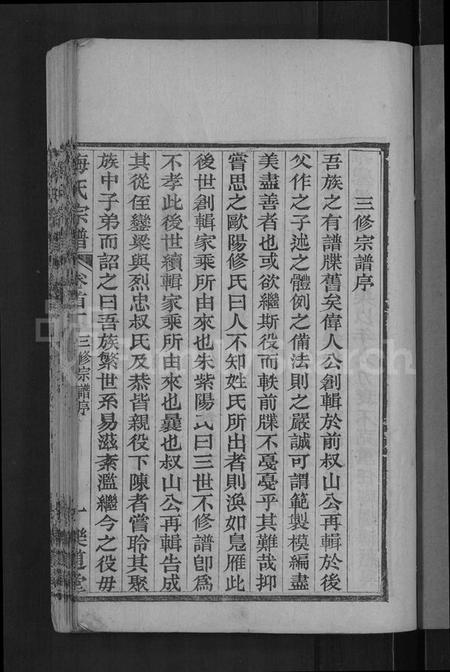 三修宗譜序
吾族之有譜牒舊矣偉人公創輯於前叔山公再輯於後
父作之子述之體例之備法則之嚴誠可謂範製模編盡
美盡善者也或欲繼斯役而軼前牒不戞戞乎其難哉抑
嘗思之歐陽修氏曰人不知姓氏所出者則渙如鳧雁此
後世創輯家乘所由來也朱紫陽氏曰三世不修譜卽爲
不孝此後世續輯家乘所由來也曩也叔山公再輯告成
其從侄鑾梁與烈忠叔氏及恭皆親役下陳者嘗聆其聚
族中子弟而詔之曰吾族繁世系易滋紊濫繼今之役毋
梅氏宗譜 卷首一 三修宗譜序 一 道堂